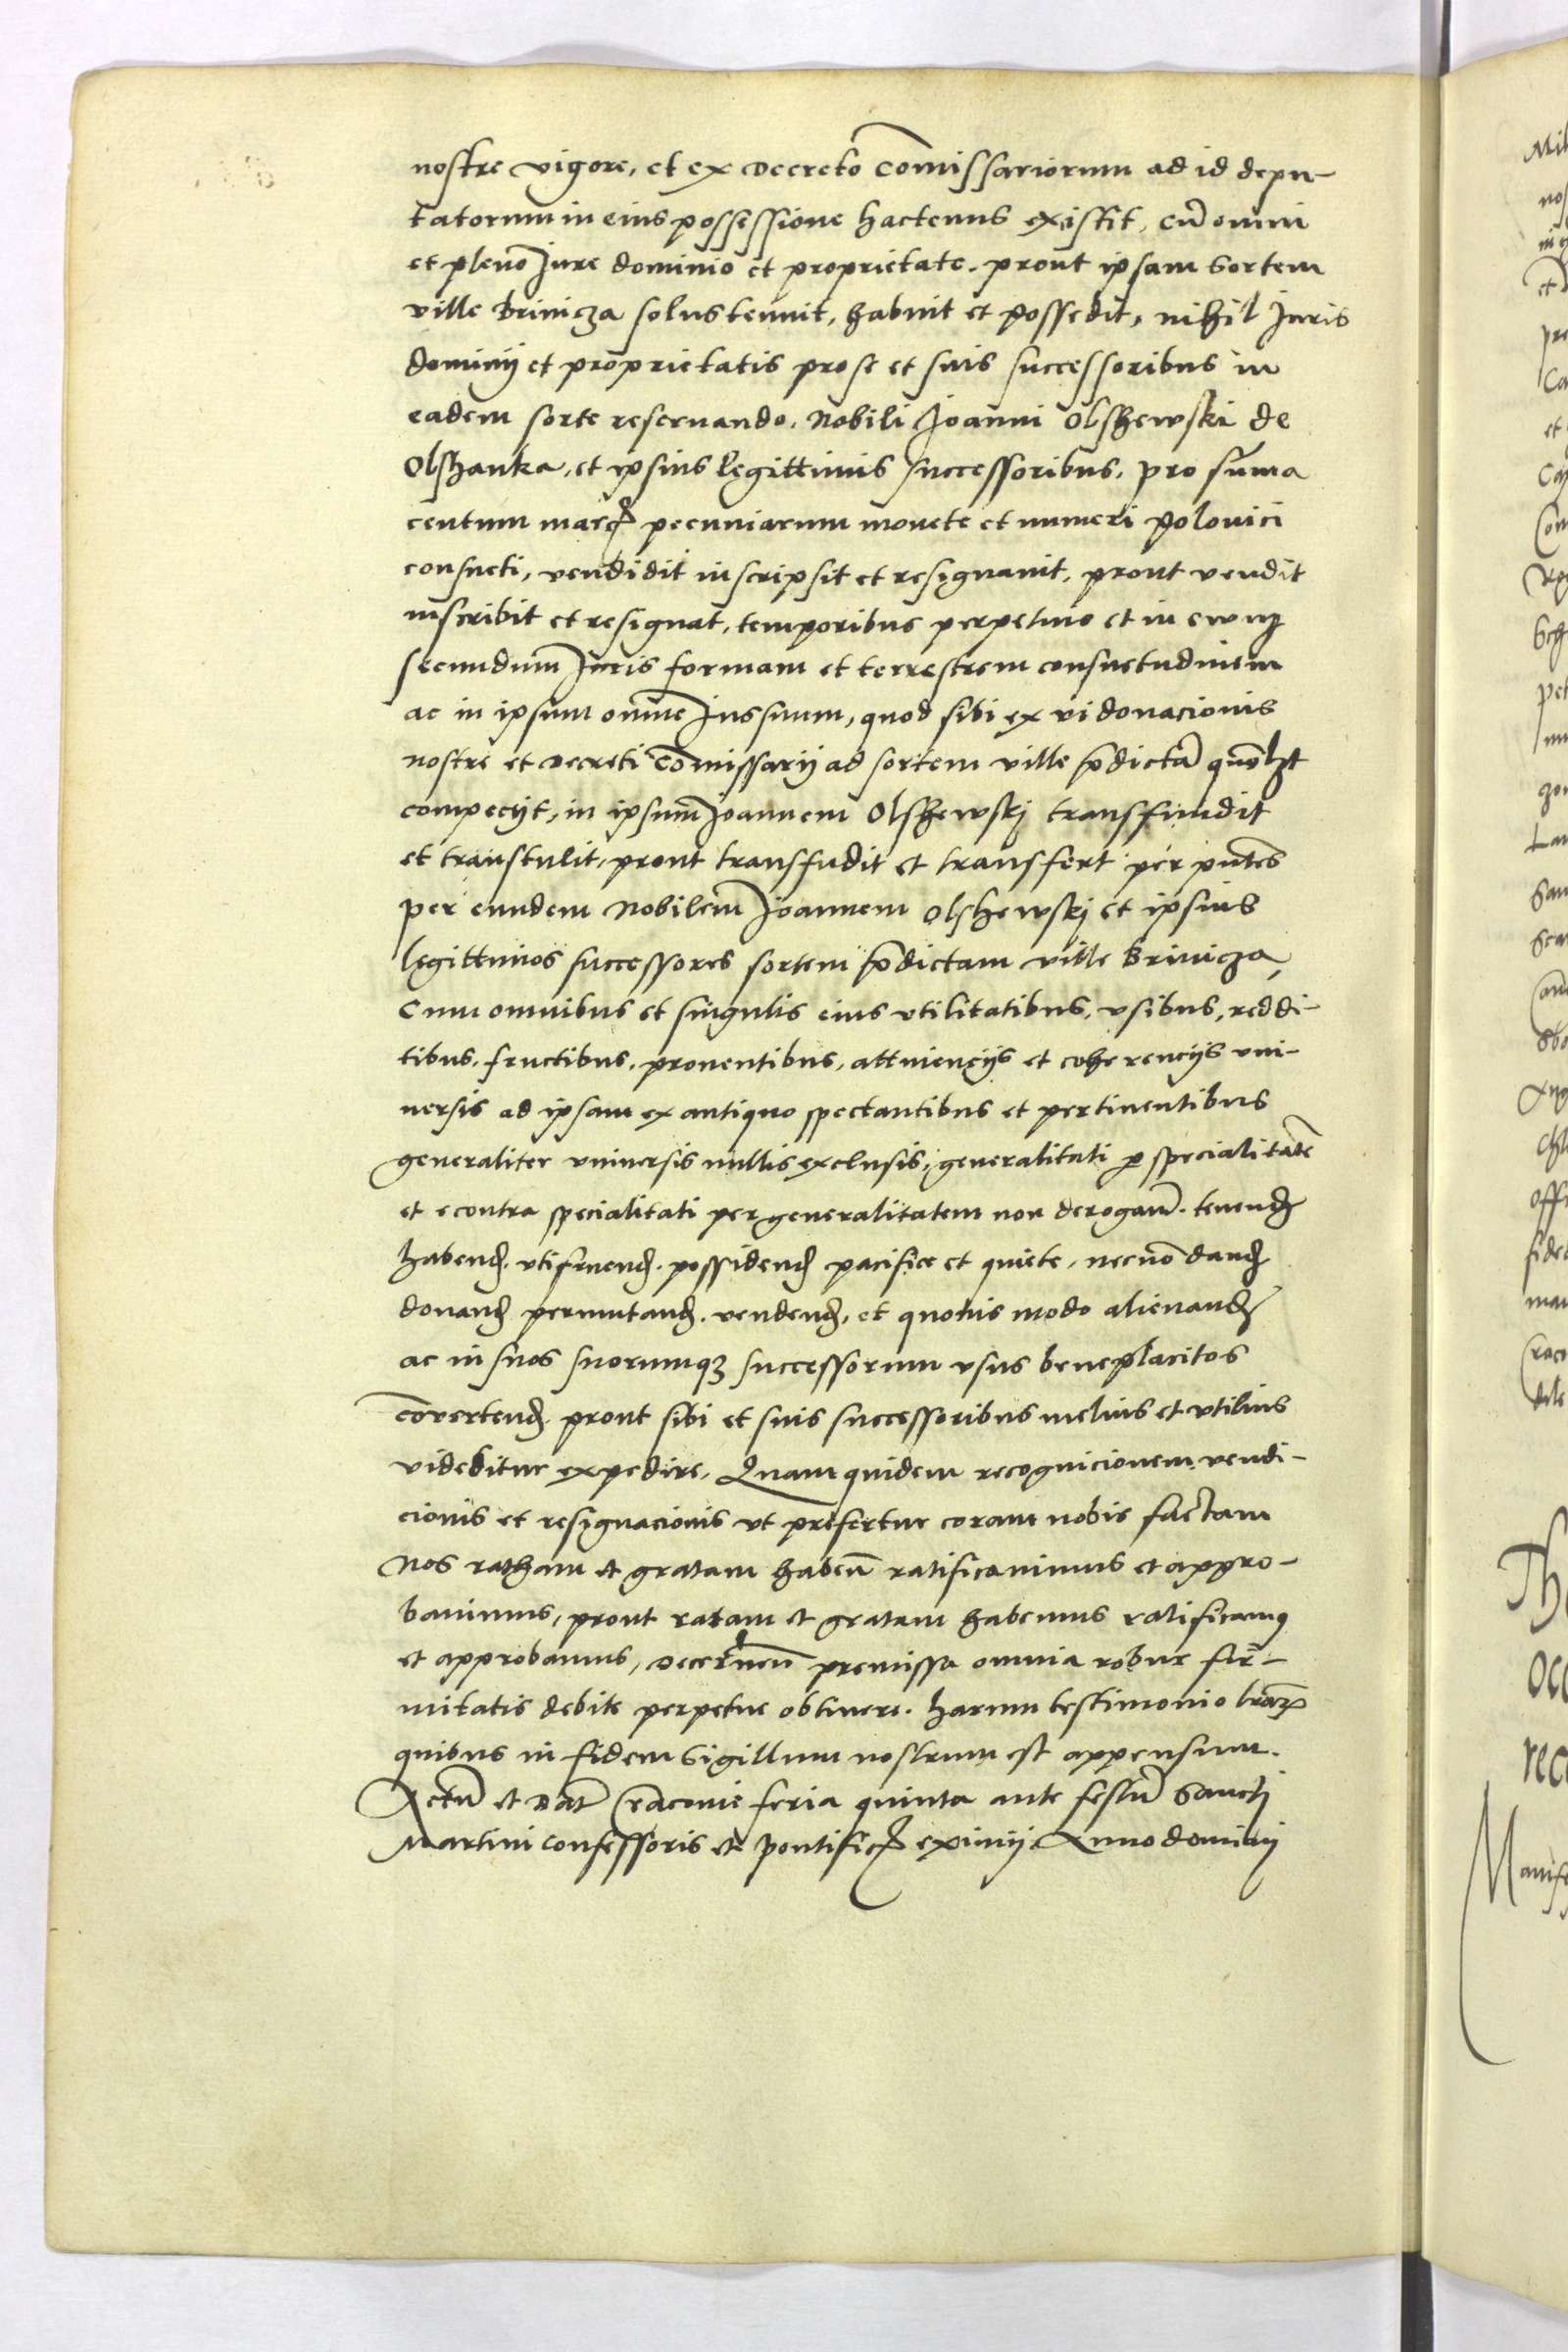 nostre vigore, et ex Decreto Comissariorum ad id depu-
tatorum in eius possessione hactenus existit, cu omni
et pleno Jure dominio et proprietate. prout ipsam Sortem
ville Brinicza solus tenuit, habuit et possedit, nihil Juris
dominij et proprietatis pro se et suis successoribus in
eadem sorte reseruando. Nobili Joanni Olszewski de
Olszanka, et ipsius legittimis successoribus, pro suma
centum marc pecuniarum monete et numeri polonici
consueti, vendidit inscripsit et resignauit, prout vendit
inscribit et resignat, temporibus perpetuo et in ewum
secundum Juris formam et terrestrem consuetudinem
ac in ipsum omne Jus suum, quod sibi ex vi donacionis
nostre et Decreti Comissarij ad sortem ville pdicta quolzt
compecijt, in ipsum Joannem Olszewskj transfundit
et transtulit, prout transfudit et transfert per pntes
per eundem Nobilem Joannem Olszewskj et ipsius
legittimos successores sortem pdictam ville Brinicza,
Cum omnibus et singulis eius vtilitatibus, vsibus, reddi-
tibus. fructibus. prouentibus, attinencijs et coherencijs vni-
uersis ad ipsam ex antiquo spectantibus et pertinentibus
generaliter vniuersis nullis exclusis, generalitati p specialitate
et econtra specialitati per generalitatem non derogam. tenend
habend. vtifruend. possidend pacifice et quiete, necno dand
donand permutand. vendend, et quouis modo alienand
ac in suos suorumqz successorum vsus beneplacitos
covertend prout sibi et suis successoribus melius et vtilius
videbitur expedire, Quam quidem recognicionem vendi-
cionis et resignacionis vt prefertur coram nobis factam
Nos ratham et gratam haben ratificauimus et appro-
bauimus, prout ratam et gratam habemus ratificamus
et approbamus, Decernen premissa omnia robur fir-
mitatis debite perpetue obtinere. harum testimonio lrarum
quibus in fidem Sigillum nostrum est appensum.
Actu et Dat Cracouie feria quinta ante festu Sanctj
Martini confessoris et pontific eximij Anno dominj